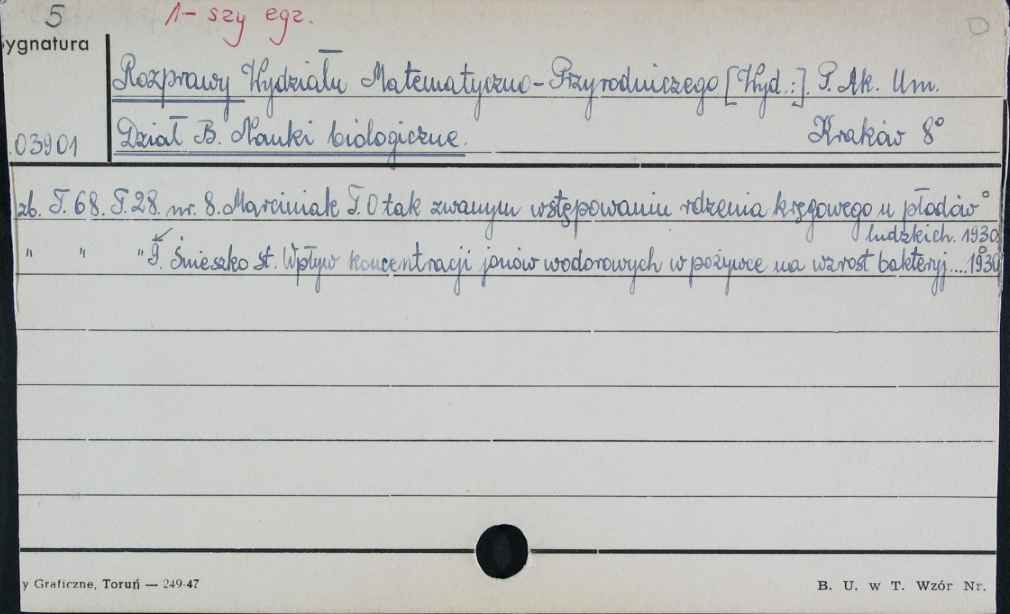 5
1-szy egz.
ygnatura
Rozprawy Wydziału Matematyczno-Przyrodniczego [Wyd.:]. P. Ak. Um.
03901
Dział B. Nauki biologiczne. Kraków 8°
zb. T. 68. T. 28. nr. 8. Marciniak T. O tak zwanym wstępowaniu rdzenia kręgowego u płodów
ludzkich. 1930
" " " 9. Śnieszko St. Wpływ koncentracji jonów wodorowych w pożywce na wzrost bakteryj.... 1930
y Graficzne, Toruń — 249-47
B. U. w T. Wzór Nr.